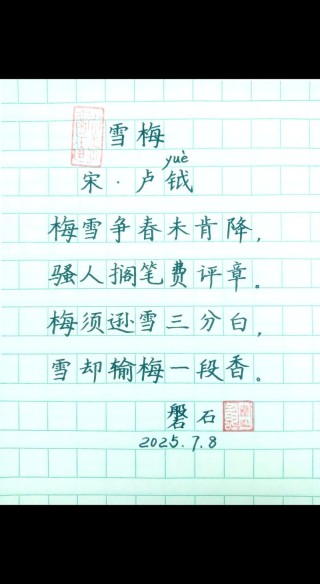 雪梅
yuè
宋·卢钺
梅雪争春未肯降,
骚人搁笔费评章。
梅须逊雪三分白,
雪却输梅一段香。
磐石
2025.7.8